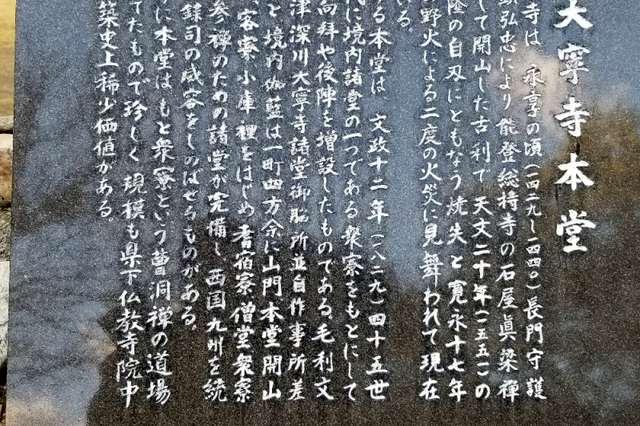 大寧寺本堂
寺は、永享の頃(一四二九〜一四四〇)長門守護
弘忠により能登総持寺の石屋真梁禅
して開山した古刹で天文二十年(一五五一)の
隆の自刃にともなう焼失と寛永十七年
野火による二度の火災に見舞われて現在
いる。
る本堂は、文政十二年(一八二九)四十五世
に境内諸堂の一つである衆寮をもとにして
向拝や後陣を増設したものである。毛利文
津深川大寧寺諸堂御脇所並自作事所差
と境内伽藍は一町四方余に山門本堂開山
客寮小庫裡をはじめ看宿寮僧堂衆寮
参禅のための諸堂が完備し、西国九州を統
録司の威容をしのばせるものがある。
に本堂はもと衆寮という曹洞禅の道場
てたもので珍しく規模も県下仏教寺院中
築史上稀少価値がある。